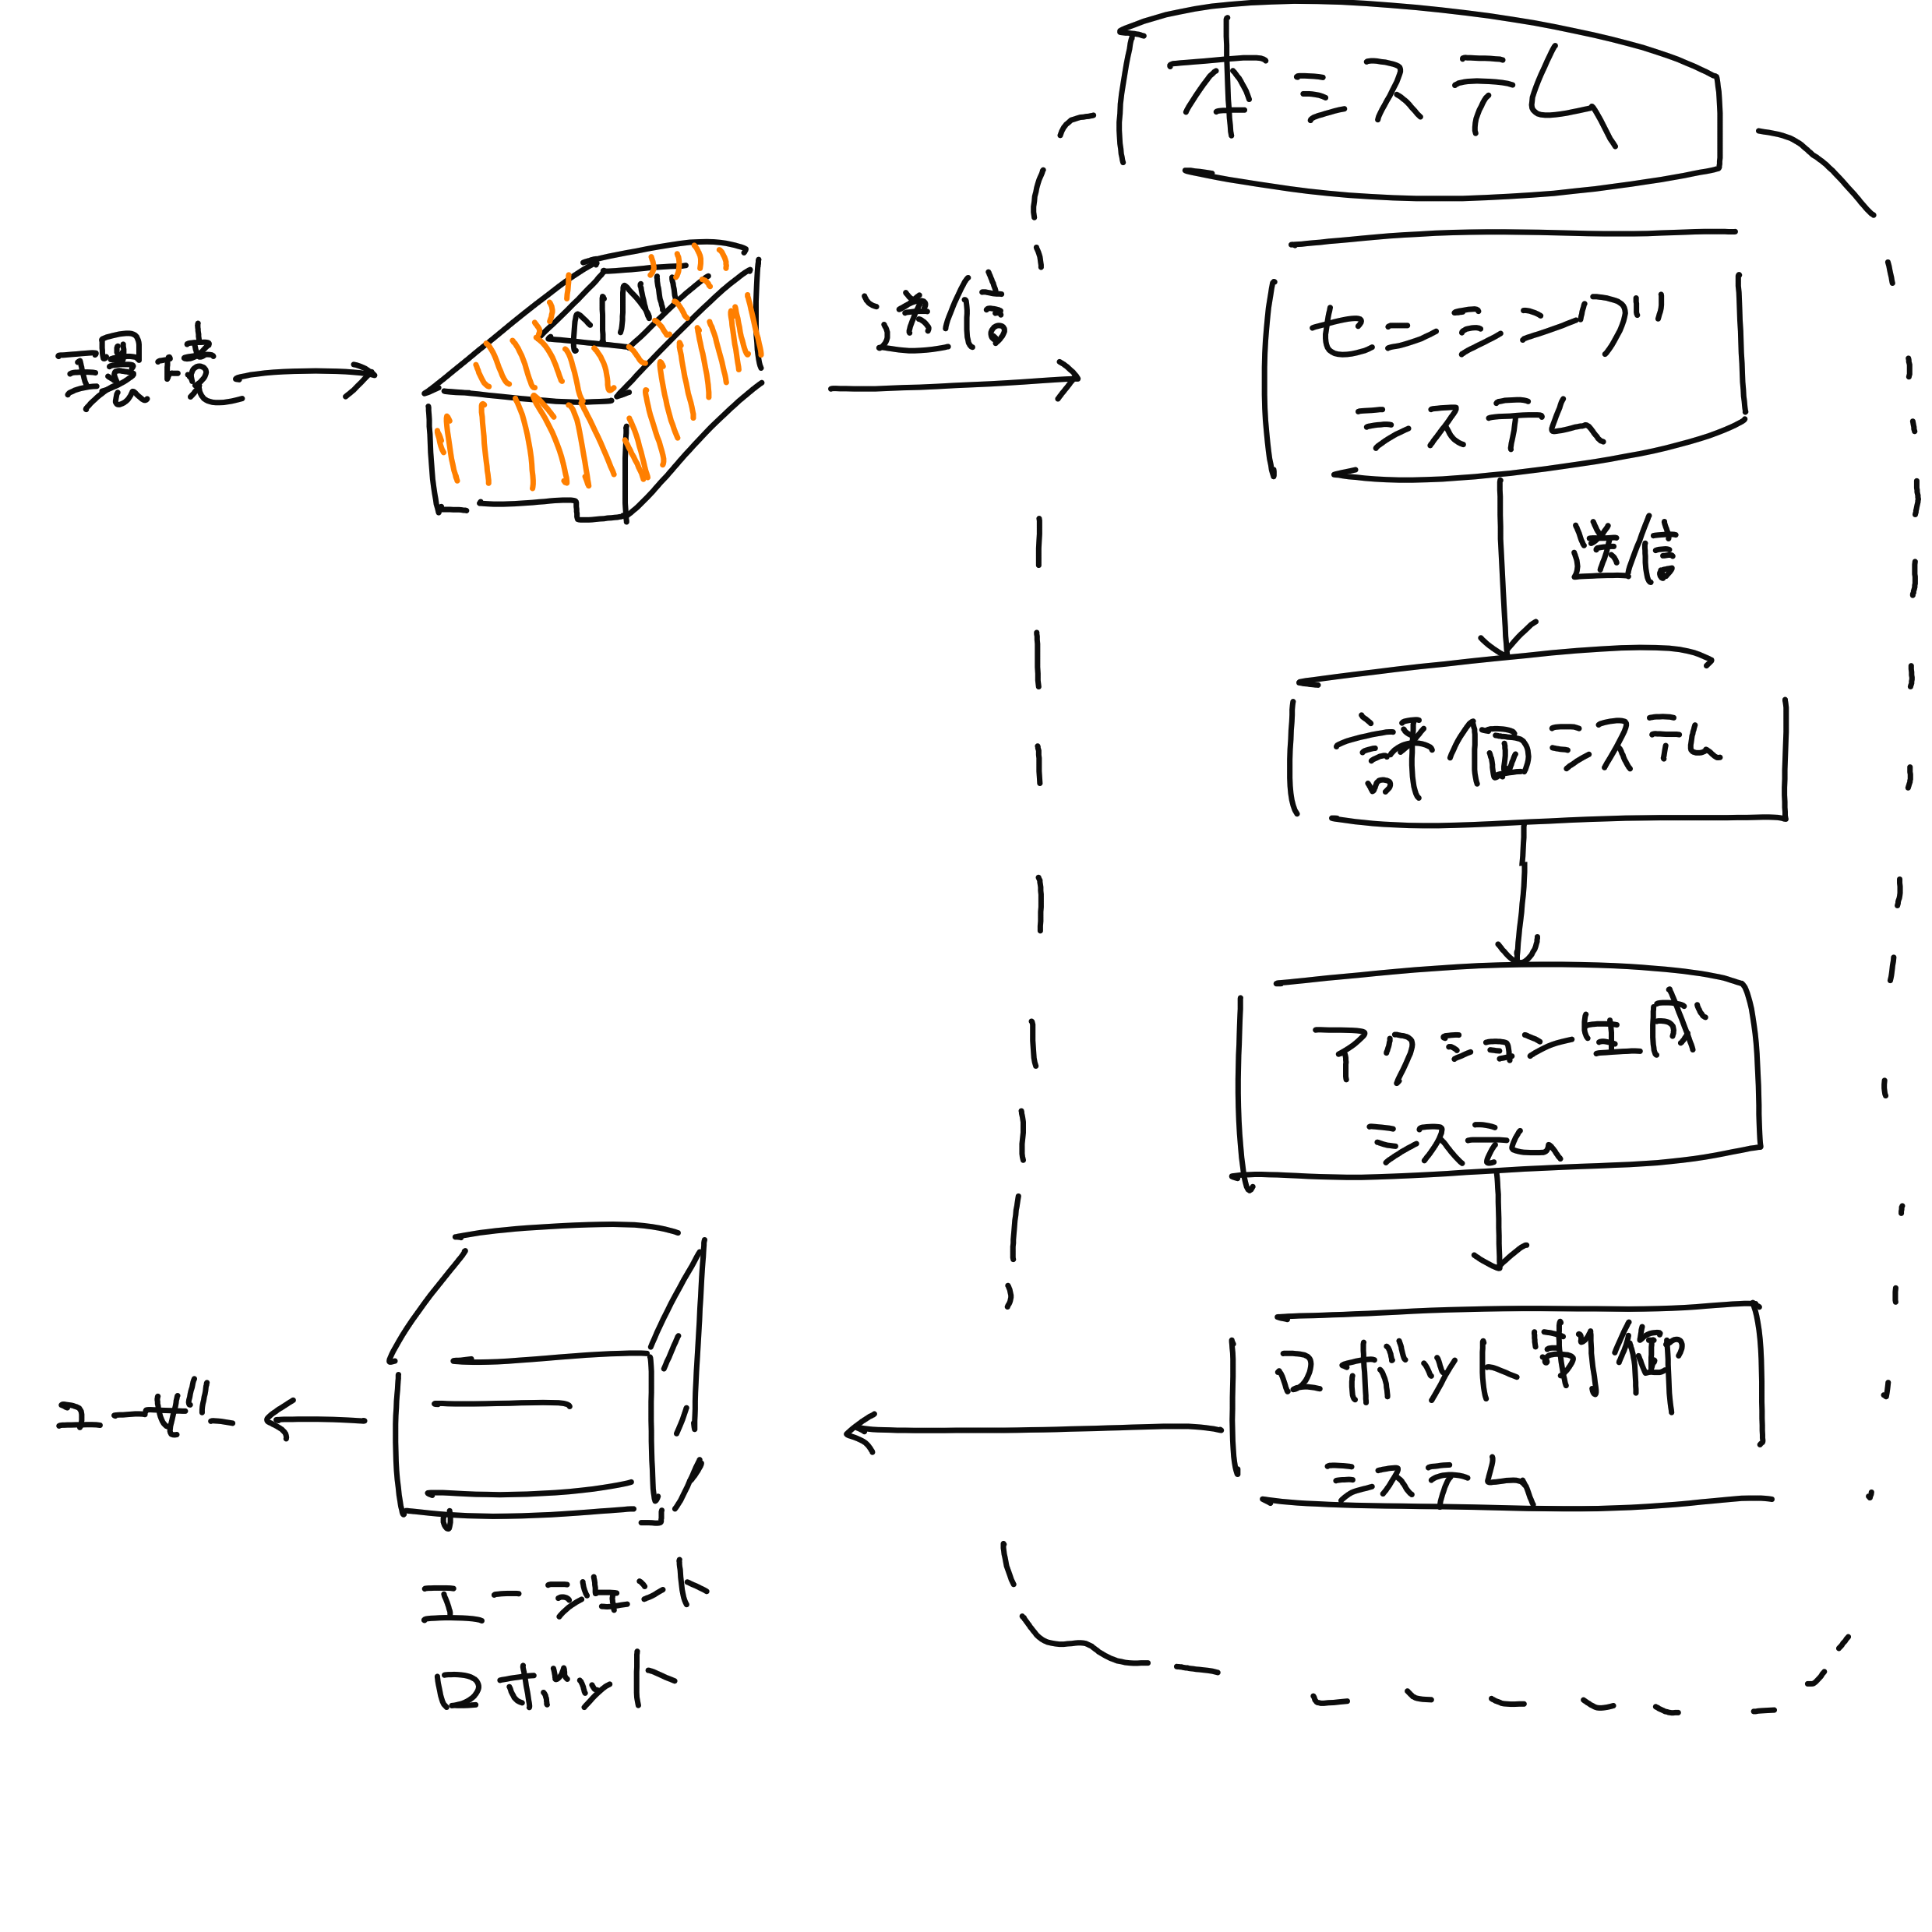 本システム
環境
送信
センシング
システム
送信
評価システム
アクション生成
システム
ロボット制御
システム
ユーザー
エージェント
ロボット